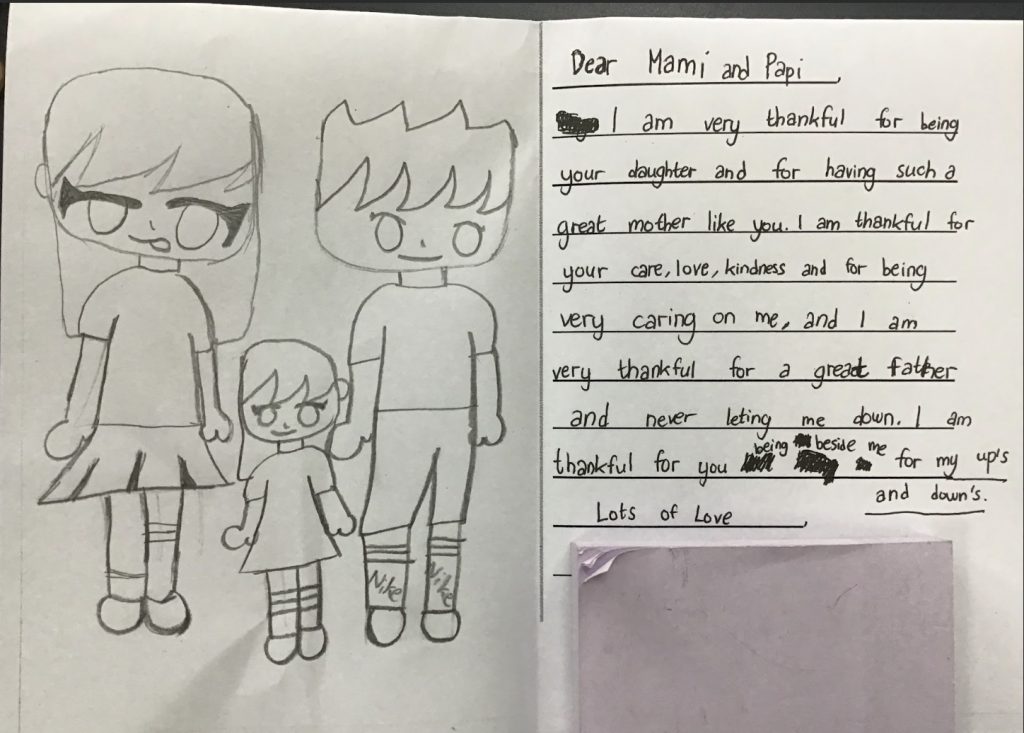 Dear Mami and Papi,
I am very thankful for being
your daughter and for having such a
great mother like you. I am thankful for
your care, love, kindness and for being
very caring on me, and I am
very thankful for a great father
and never leting me down. I am
being beside me
thankful for you for my up's
and down's.
Lots of Love,
Nike Nike